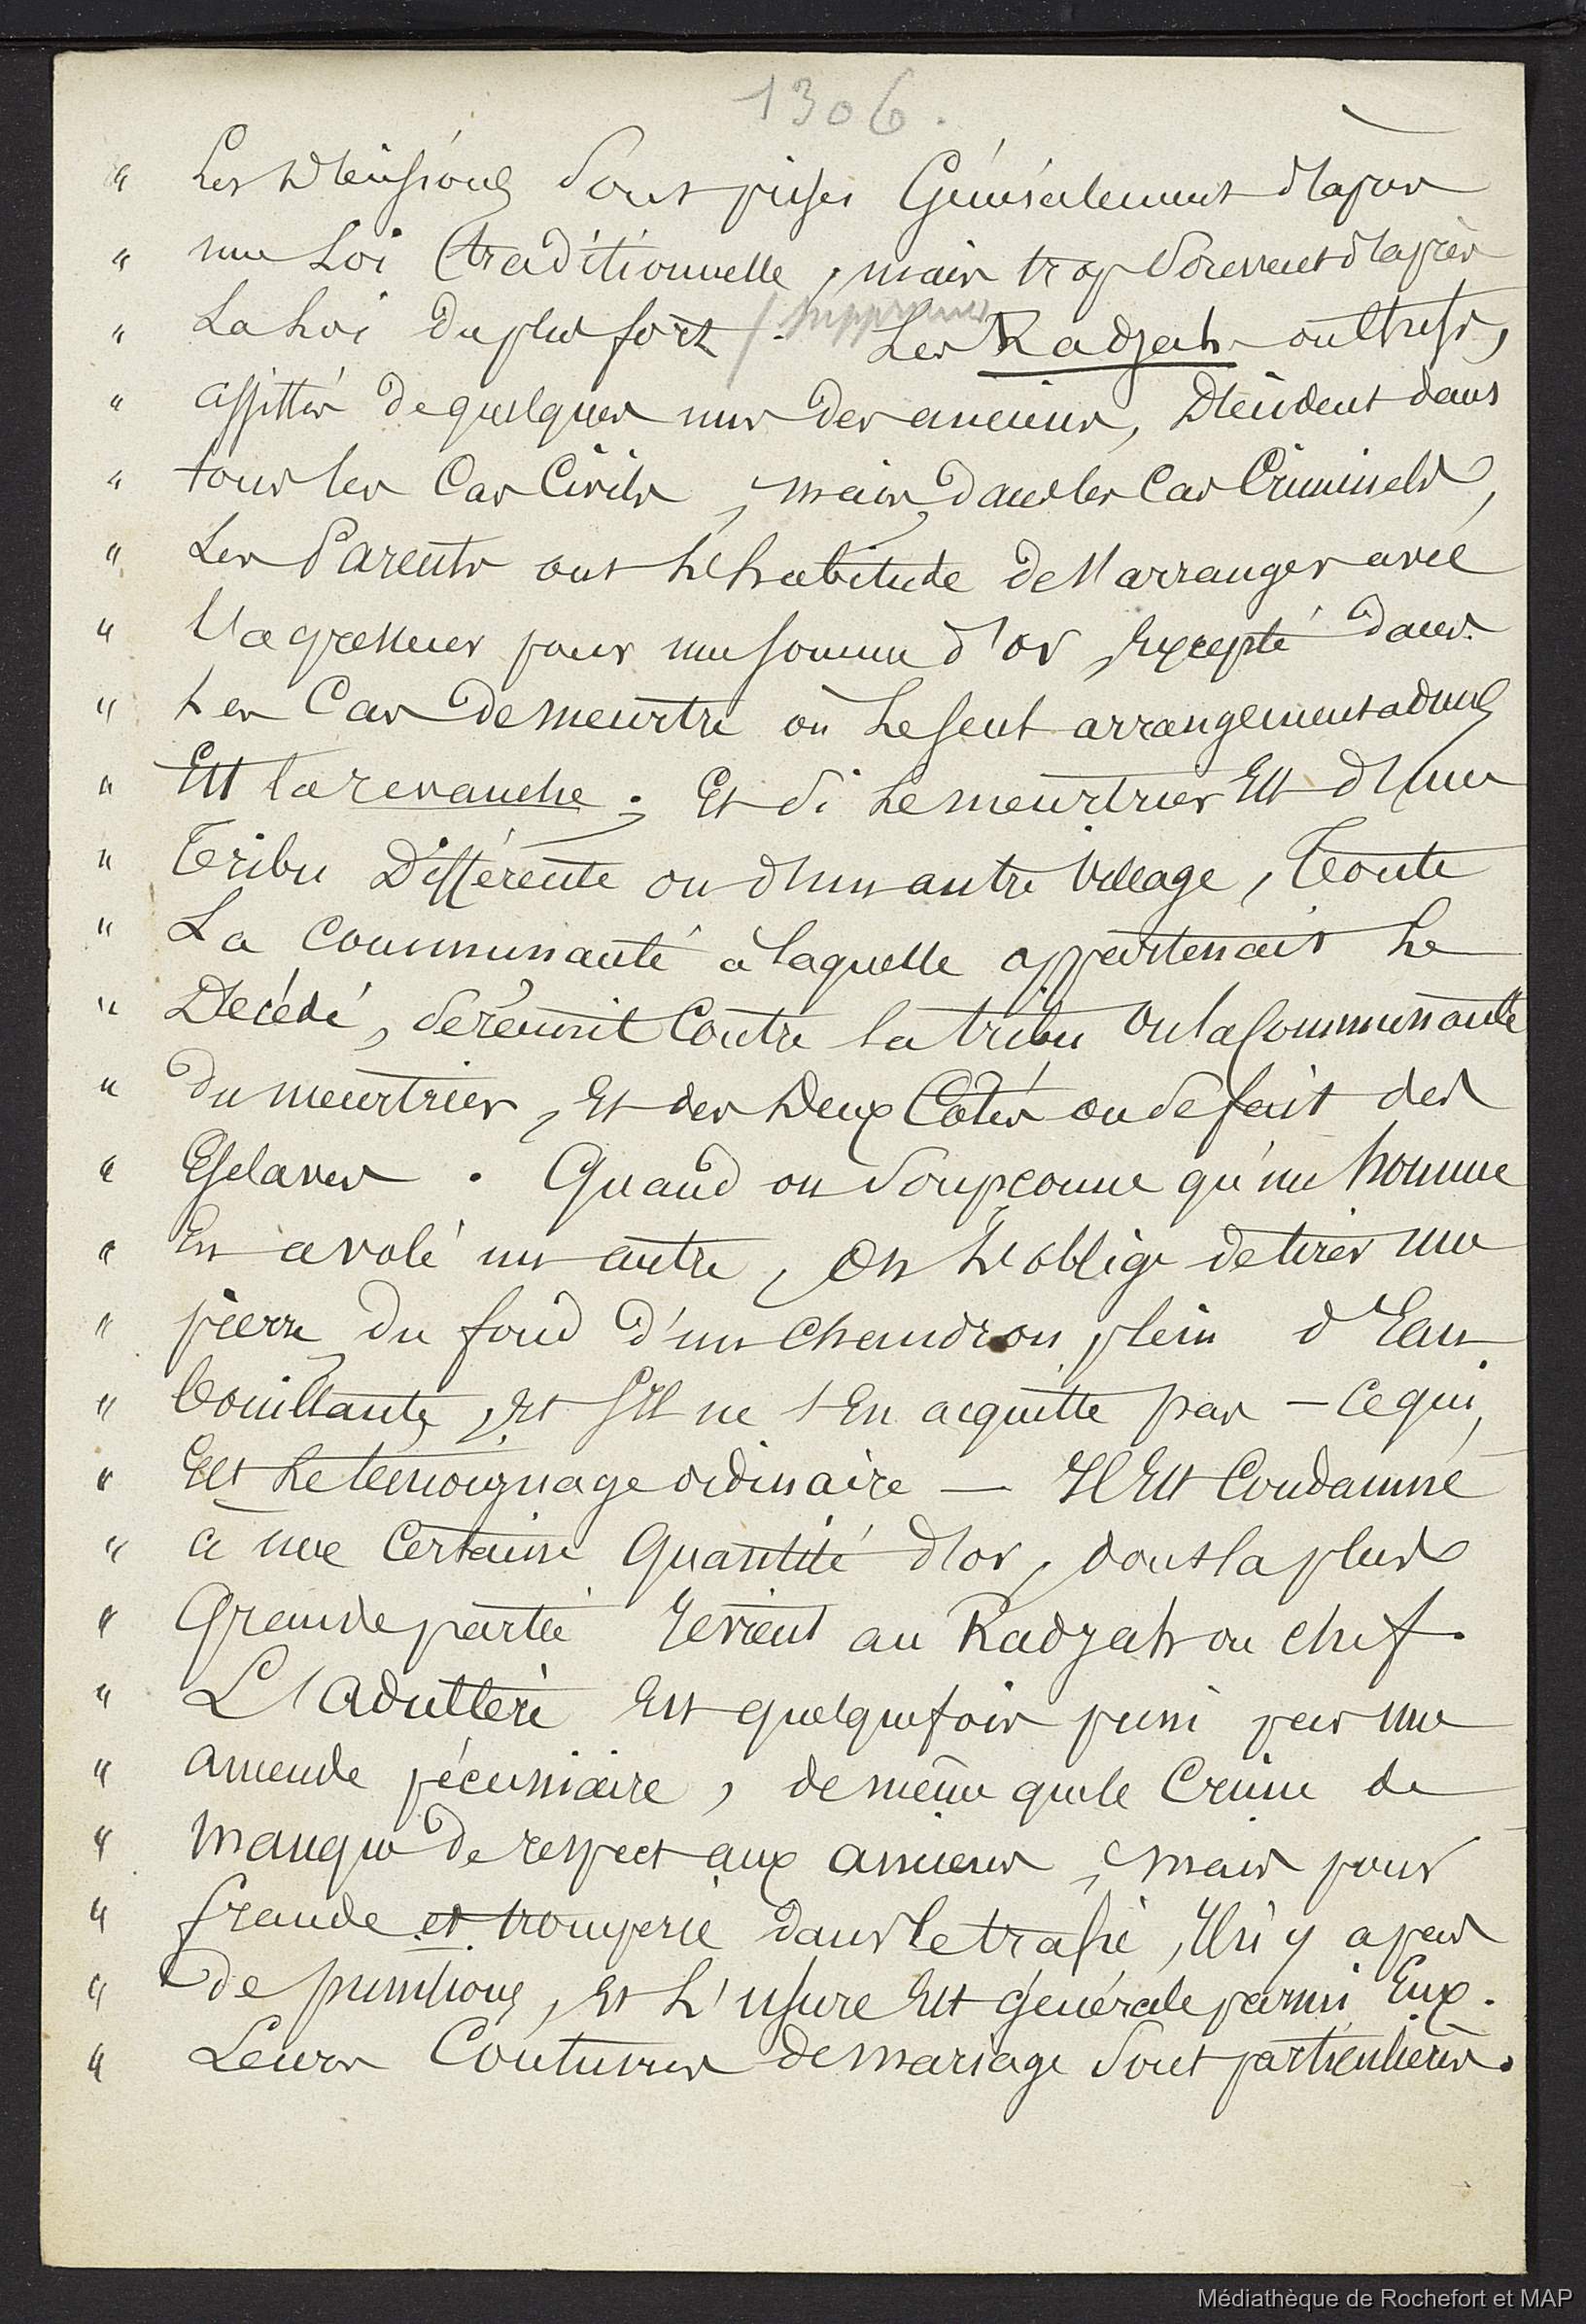 1306.
" Les Décisions Sont prises Généralement d'après
" une Loi traditionnelle, mais trop Souvent d'après
" La Loi du plus fort / supprimer . Les Radjahs ou Chefs,
" assistés de quelques uns des anciens, Décident dans
" tous les Cas Civils, mais dans les Cas Criminels,
" Les Parents ont L'habitude de s'arranger avec
" l'agresseur pour une somme d'or, Excepté dans
" Les Cas de meurtre où Le seul arrangement admis
" Est la revanche ; Et Si Le meurtrier Est d'une
" Tribu Différente ou d'un autre Village, Toute
" La Communauté à laquelle appartenait Le
" Décédé, Se réunit Contre la tribu ou la Communauté
" du meurtrier, Et des Deux Côtés on Se fait des
" Esclaves . Quand on Soupçonne qu'un homme
" En a volé un autre, On L'oblige de tirer une
" pierre du fond d'un Chaudron plein d'Eau
" bouillante, Et S'Il ne s'En acquitte pas – Ce qui
" Est Le témoignage ordinaire — Il Est Condamné
" à une Certaine Quantité d'or, dont la plus
" Grande partie revient au Radjah ou chef.
" L'Adultère Est quelquefois puni par une
" amende pécuniaire, de même que le Crime de
" manque de respect aux anciens, mais pour
" fraude et tromperie dans le trafic, Il n'y a pas
" de punitions, Et L'usure Est générale parmi Eux.
" Leurs Coutumes de mariage Sont particulières.
Médiathèque de Rochefort et MAP